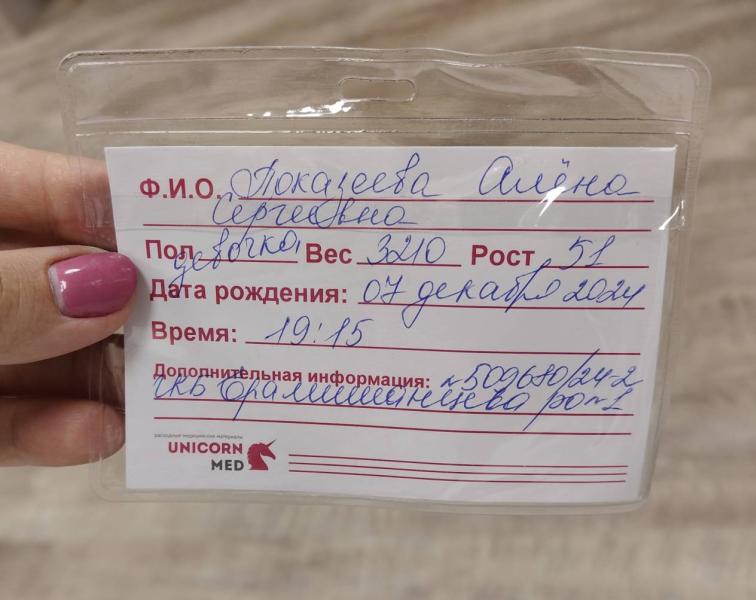 Ф.И.О. Показеева Алёна
Сергеевна
Пол девочка Вес 3210 Рост 51
Дата рождения: 07 декабря 2024
Время: 19:15
Дополнительная информация: №509680/24-2
ГКБ Ерамишанцева ро №1
расходные медицинские материалы
UNICORN
MED